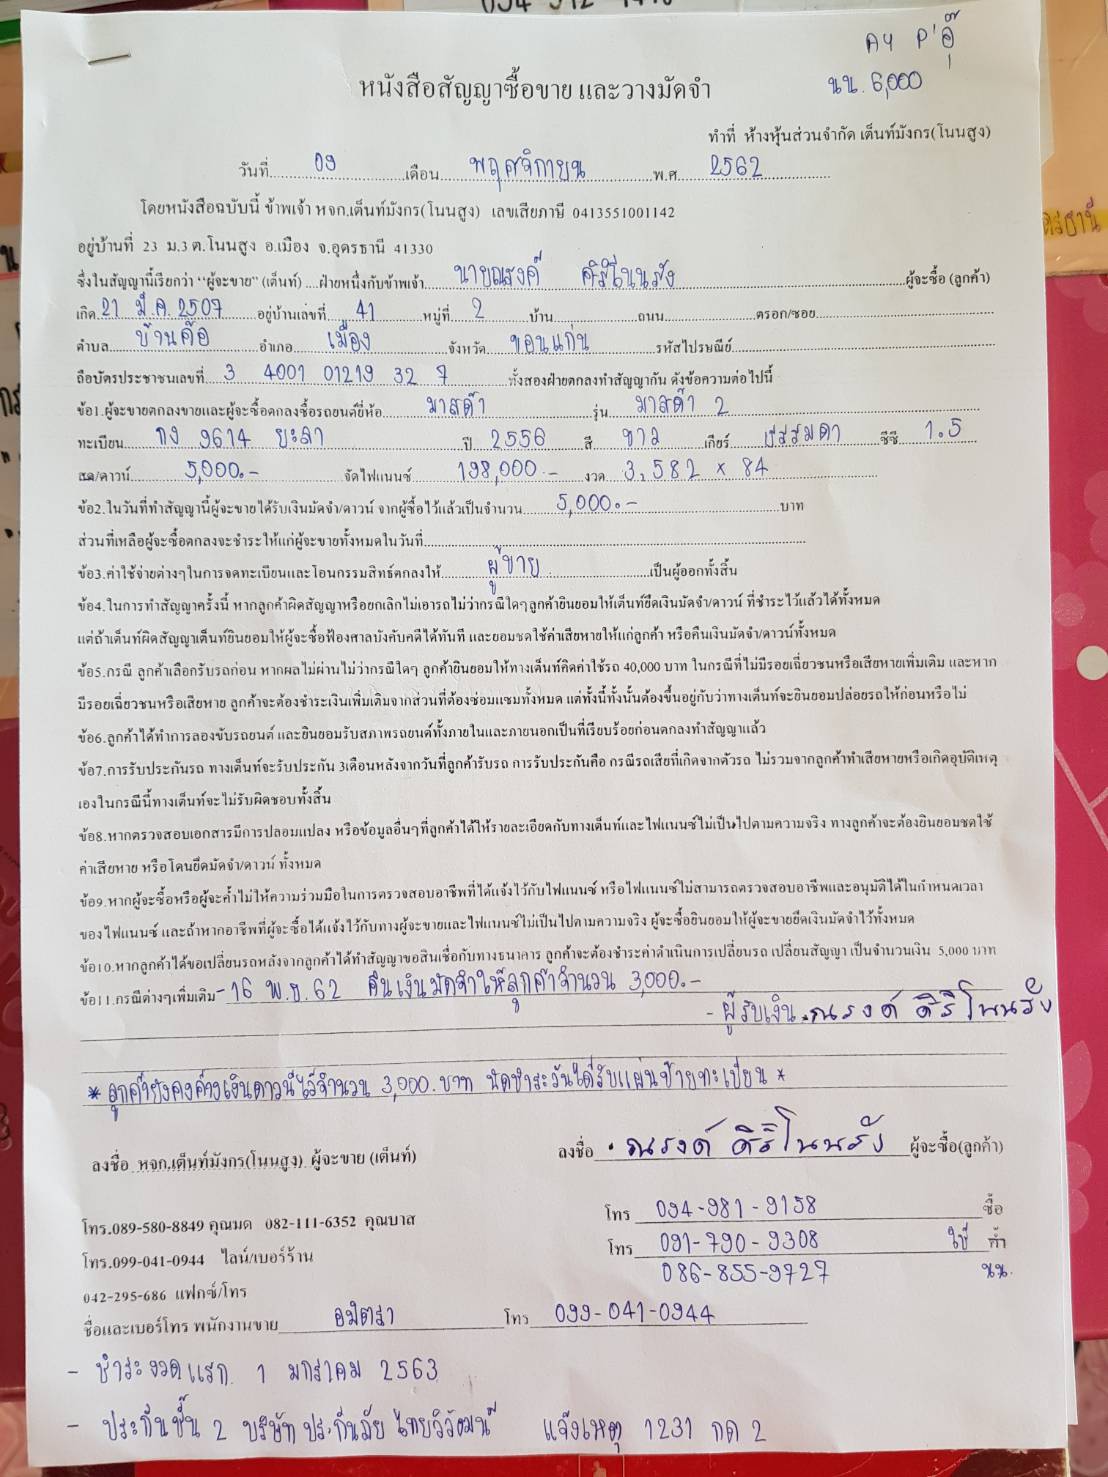 AY P'อุ๊
นน. 6,000
หนังสือสัญญาซื้อขาย และวางมัดจำ
ทำที่ ห้างหุ้นส่วนจำกัด เต็นท์มังกร(โนนสูง)
วันที่ 09 เดือน พฤศจิกายน พ.ศ 2562
โดยหนังสือฉบับนี้ ข้าพเจ้า หจก.เต็นท์มังกร(โนนสูง) เลขเสียภาษี 0413551001142
อยู่บ้านที่ 23 ม.3 ต.โนนสูง อ.เมือง จ.อุดรธานี 41330
ซึ่งในสัญญานี้เรียกว่า "ผู้จะขาย" (เต็นท์) ....ฝ่ายหนึ่งกับข้าพเจ้า นายณรงค์ ศิริโนนรัง ผู้จะซื้อ (ลูกค้า)
เกิด 21 มี.ค. 2507 อยู่บ้านเลขที่ 41 หมู่ที่ 2 บ้าน ถนน ตรอก/ซอย
ตำบล บ้านค้อ อำเภอ เมือง จังหวัด ขอนแก่น รหัสไปรษณีย์
ถือบัตรประชาชนเลขที่ 3 4001 01219 32 7 ทั้งสองฝ่ายตกลงทำสัญญากัน ดังข้อความต่อไปนี้
ข้อ1.ผู้จะขายตกลงขายและผู้จะซื้อตกลงซื้อรถยนต์ยี่ห้อ มาสด้า รุ่น มาสด้า 2
ทะเบียน กง 9614 ยะลา ปี 2556 สี ขาว เกียร์ ธรรมดา ซีซี 1.5
สด/ดาวน์ 5,000.- จัดไฟแนนซ์ 198,000.- งวด 3,582 x 84
ข้อ2.ในวันที่ทำสัญญานี้ผู้จะขายได้รับเงินมัดจำ/ดาวน์ จากผู้ซื้อไว้แล้วเป็นจำนวน 5,000.- บาท
ส่วนที่เหลือผู้จะซื้อตกลงจะชำระให้แก่ผู้จะขายทั้งหมดในวันที่
ข้อ3.ค่าใช้จ่ายต่างๆในการจดทะเบียนและโอนกรรมสิทธ์ตกลงให้ ผู้ขาย เป็นผู้ออกทั้งสิ้น
ข้อ4.ในการทำสัญญาครั้งนี้ หากลูกค้าผิดสัญญาหรือยกเลิกไม่เอารถไม่ว่ากรณีใดๆลูกค้ายินยอมให้เต็นท์ยึดเงินมัดจำ/ดาวน์ ที่ชำระไว้แล้วได้ทั้งหมด
แต่ถ้าเต็นท์ผิดสัญญาเต็นท์ยินยอมให้ผู้จะซื้อฟ้องศาลบังคับคดีได้ทันที และยอมชดใช้ค่าเสียหายให้แก่ลูกค้า หรือคืนเงินมัดจำ/ดาวน์ทั้งหมด
ข้อ5.กรณี ลูกค้าเลือกรับรถก่อน หากผลไม่ผ่านไม่ว่ากรณีใดๆ ลูกค้ายินยอมให้ทางเต็นท์คิดค่าใช้รถ 40,000 บาท ในกรณีที่ไม่มีรอยเฉี่ยวชนหรือเสียหายเพิ่มเติม และหาก
มีรอยเฉี่ยวชนหรือเสียหาย ลูกค้าจะต้องชำระเงินเพิ่มเติมจากส่วนที่ต้องซ่อมแซมทั้งหมด แต่ทั้งนี้ทั้งนั้นต้องขึ้นอยู่กับว่าทางเต็นท์จะยินยอมปล่อยรถให้ก่อนหรือไม่
ข้อ6.ลูกค้าได้ทำการลองขับรถยนต์ และยินยอมรับสภาพรถยนต์ทั้งภายในและภายนอกเป็นที่เรียบร้อยก่อนตกลงทำสัญญาแล้ว
ข้อ7.การรับประกันรถ ทางเต็นท์จะรับประกัน 3เดือนหลังจากวันที่ลูกค้ารับรถ การรับประกันคือ กรณีรถเสียที่เกิดจากตัวรถ ไม่รวมจากลูกค้าทำเสียหายหรือเกิดอุบัติเหตุ
เองในกรณีนี้ทางเต็นท์จะไม่รับผิดชอบทั้งสิ้น
ข้อ8.หากตรวจสอบเอกสารมีการปลอมแปลง หรือข้อมูลอื่นๆที่ลูกค้าได้ให้รายละเอียดกับทางเต็นท์และไฟแนนซ์ไม่เป็นไปตามความจริง ทางลูกค้าจะต้องยินยอมชดใช้
ค่าเสียหาย หรือโดนยึดมัดจำ/ดาวน์ ทั้งหมด
ข้อ9.หากผู้จะซื้อหรือผู้จะค้ำไม่ให้ความร่วมมือในการตรวจสอบอาชีพที่ได้แจ้งไว้กับไฟแนนซ์ หรือไฟแนนซ์ไม่สามารถตรวจสอบอาชีพและอนุมัติได้ในกำหนดเวลา
ของไฟแนนซ์ และถ้าหากอาชีพที่ผู้จะซื้อได้แจ้งไว้กับทางผู้จะขายและไฟแนนซ์ไม่เป็นไปตามความจริง ผู้จะซื้อยินยอมให้ผู้จะขายยึดเงินมัดจำไว้ทั้งหมด
ข้อ10.หากลูกค้าได้ขอเปลี่ยนรถหลังจากลูกค้าได้ทำสัญญาขอสินเชื่อกับทางธนาคาร ลูกค้าจะต้องชำระค่าดำเนินการเปลี่ยนรถ เปลี่ยนสัญญา เป็นจำนวนเงิน 5,000 บาท
ข้อ11.กรณีต่างๆเพิ่มเติม - 16 พ.ย. 62 คืนเงินมัดจำให้ลูกค้าจำนวน 3,000.-
- ผู้รับเงิน ณรงค์ ศิริโนนรัง
* ลูกค้ายังคงค้างเงินดาวน์ไว้จำนวน 3,000.บาท นัดชำระวันได้รับแผ่นป้ายทะเบียน *
ลงชื่อ หจก.เต็นท์มังกร(โนนสูง) ผู้จะขาย (เต็นท์)
ลงชื่อ ณรงค์ ศิริโนนรัง ผู้จะซื้อ(ลูกค้า)
โทร.089-580-8849 คุณมด 082-111-6352 คุณบาส
โทร 094-981-9158 ซื้อ
โทร.099-041-0944 ไลน์/เบอร์ร้าน
โทร 091-790-9308 ใช้ ค้ำ
086-855-9727 นน.
042-295-686 แฟกซ์/โทร
ชื่อและเบอร์โทร พนักงานขาย อมิตรา โทร 099-041-0944
- ชำระงวดแรก 1 มกราคม 2563
- ประกันชั้น 2 บริษัท ประกันภัย ไทยวิวัฒน์ แจ้งเหตุ 1231 กด 2